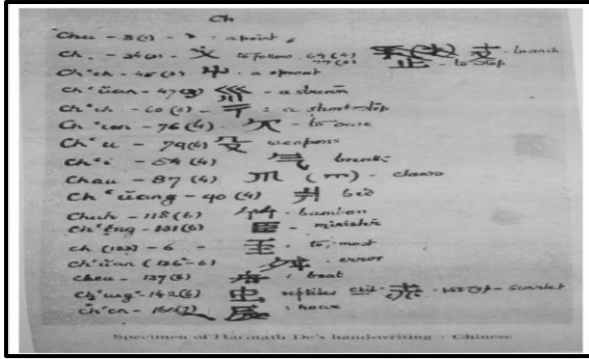 Ch
Chu - 3(1) - 丶 : a point
Ch. - 34(3) - 夂 to follow. 64(4) 支 - branch
77(4) 止 - to stop
45(3) 屮 - a sprout
Ch'üan - 47(3) 巛 - a stream
60(3) - : a short step
Ch'ien - 76(4) 欠 - to owe
Ch'u - 79(4) 殳 weapons
Ch'i - 84(4) 气 breath
Chau - 87(4) 爪 (爫) - claws
Ch'üang - 90(4) 爿 bed
Chuh - 118(6) 竹 - bamboo
Ch'êng - 131(6) 臣 - minister
ch (133) - 6 - 至 : to, most
Ch'üan (136-6) 舛 . error
cheu - 137(6) 舟 : boat
Ch'ung - 142(6) 虫 reptiles 赤 155(7) - scarlet
ch'en - 161(7) 辰 : hour
Specimen of Harinath De's hand-writing : Chinese